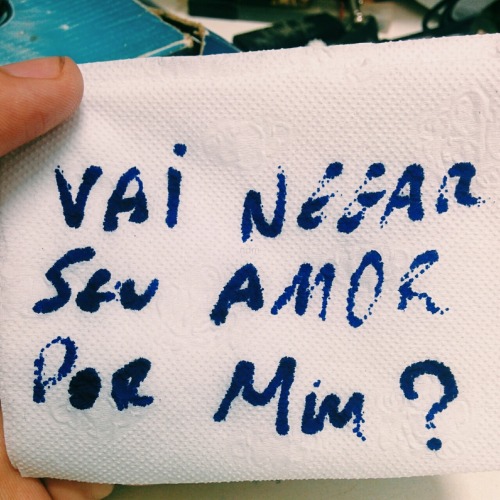 VAi NEGAR
Seu AMOR
POR Mim?